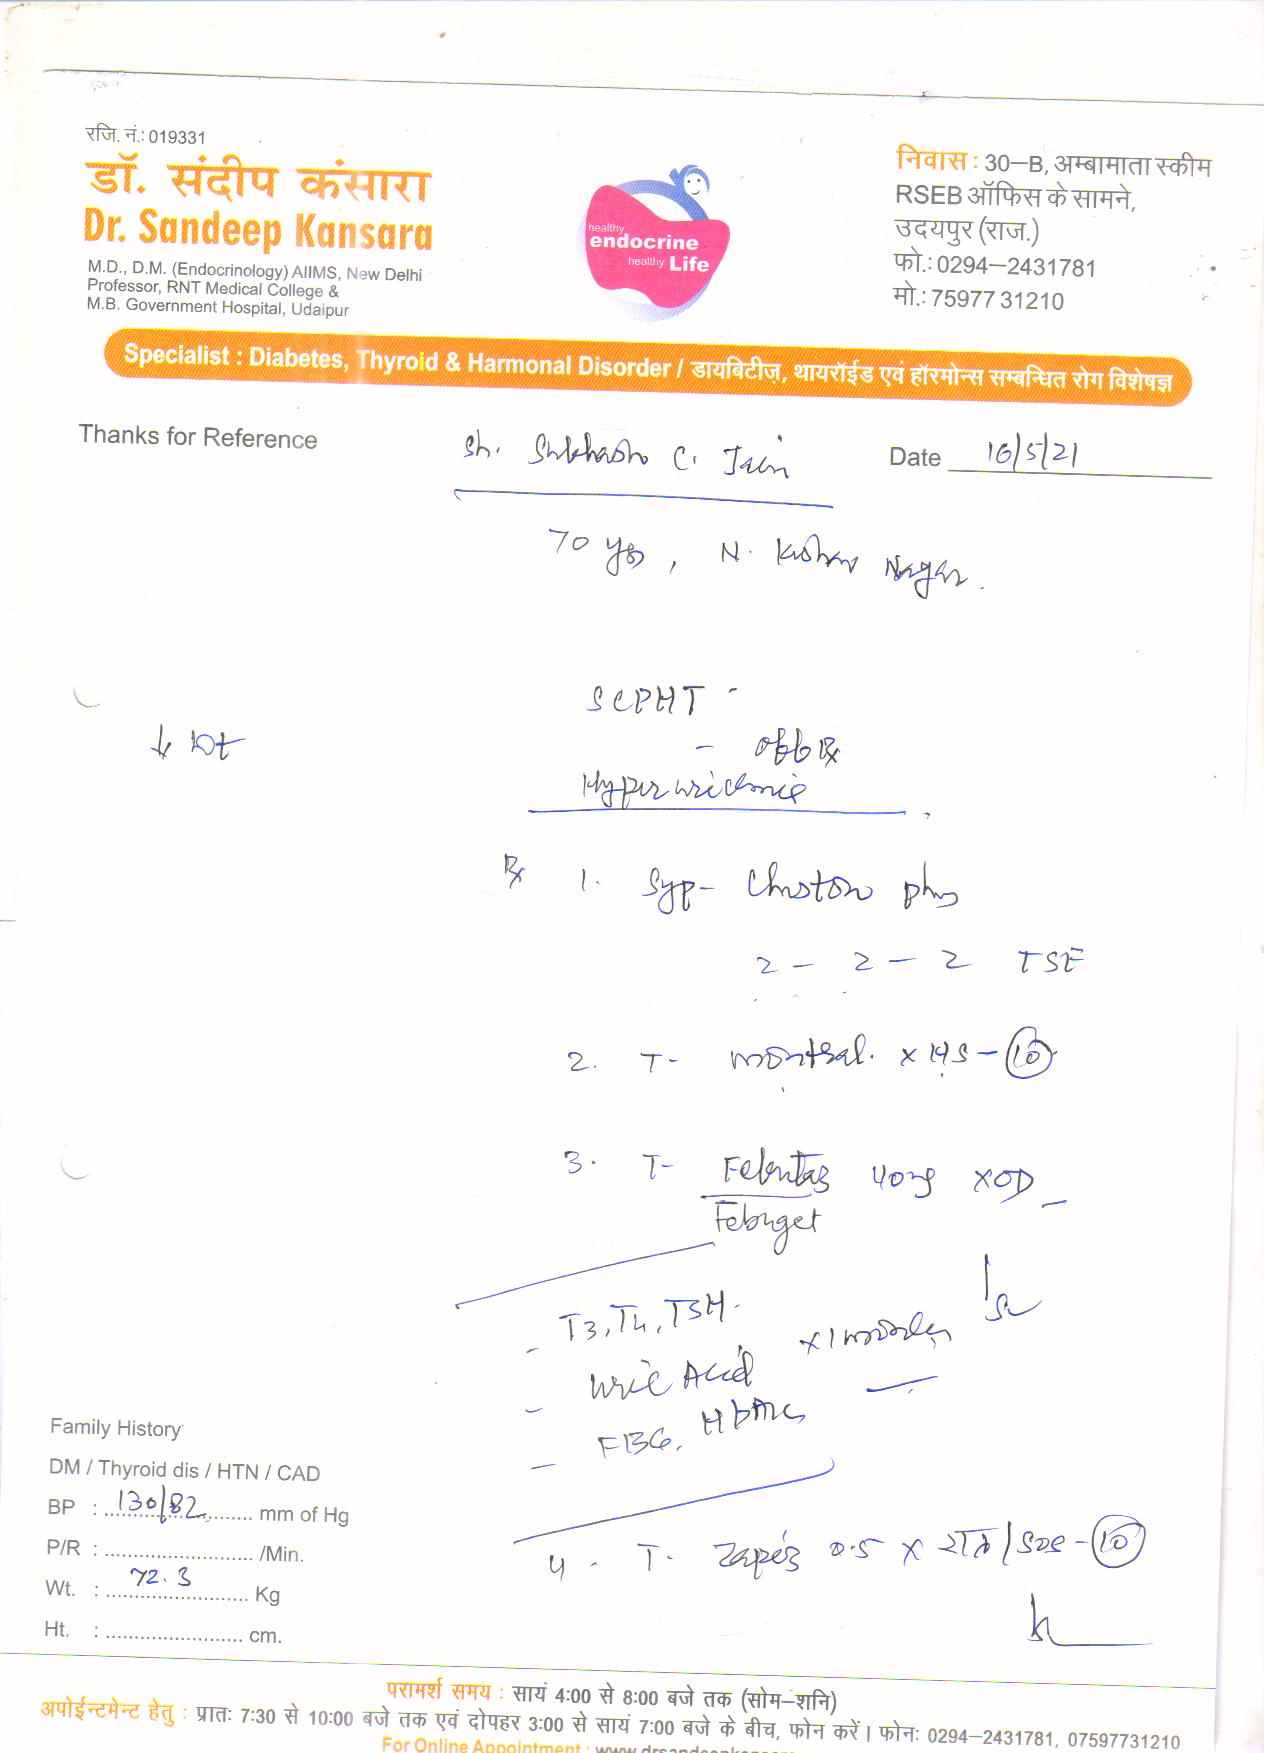 रजि. नं.: 019331
डॉ. संदीप कंसारा
Dr. Sandeep Kansara
M.D., D.M. (Endocrinology) AIIMS, New Delhi
Professor, RNT Medical College &
M.B. Government Hospital, Udaipur
healthy
endocrine
healthy Life
निवास : 30–B, अम्बामाता स्कीम
RSEB ऑफिस के सामने,
उदयपुर (राज.)
फो.: 0294–2431781
मो.: 75977 31210
Specialist : Diabetes, Thyroid & Harmonal Disorder / डायबिटीज़, थायरॉईड एवं हॉरमोन्स सम्बन्धित रोग विशेषज्ञ
Thanks for Reference
Sh. Subhash C. Jain
Date 16/5/21
70 yrs, N. Nagar.
SCPHT -
↓ wt
- off Rx
Hyperuricemia
Rx 1. Syp- plus
2 - 2 - 2 TSF
2. T- x HS - 10
3. T- Febutaz 40mg x OD
Febuget
- T3, T4, TSH.
- Uric Acid x 1 month
- FBG, HbA1c
Family History
DM / Thyroid dis / HTN / CAD
BP : 130/82 mm of Hg
P/R : /Min.
Wt. : 72.3 Kg
Ht. : cm.
4 - T. Zapiz 0.5 x रात / SOS - 10
परामर्श समय : सायं 4:00 से 8:00 बजे तक (सोम–शनि)
अपोईन्टमेन्ट हेतु : प्रातः 7:30 से 10:00 बजे तक एवं दोपहर 3:00 से सायं 7:00 बजे के बीच, फोन करें । फोनः 0294–2431781, 07597731210
For Online Appointment :